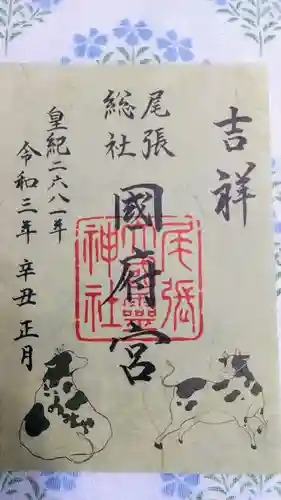 吉祥
尾張
総社
國府宮
尾張
大國霊
神社
皇紀二六八一年
令和三年 辛丑 正月